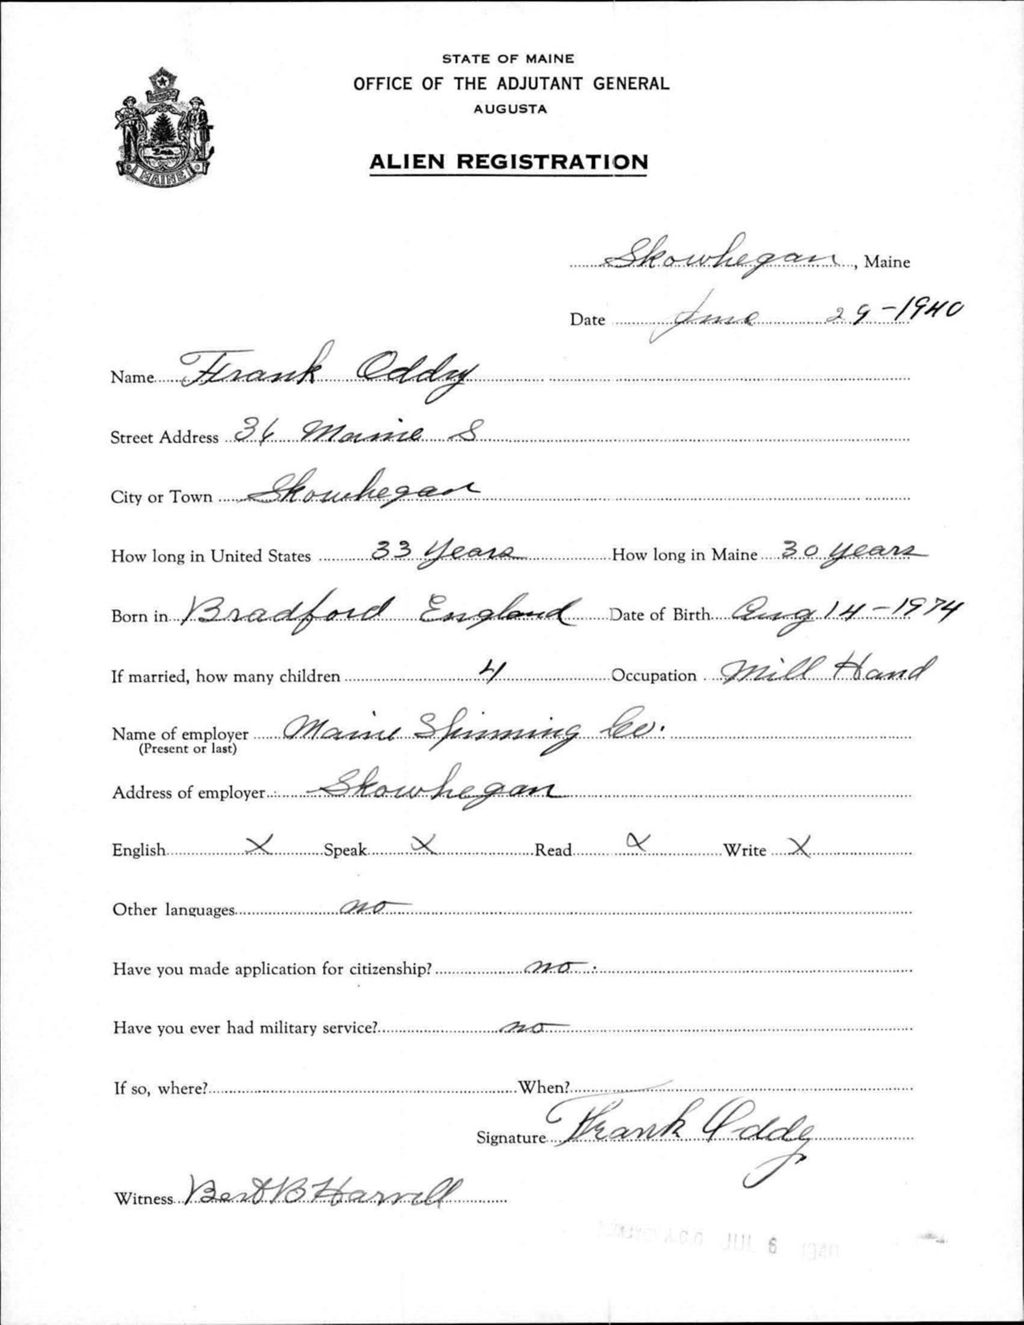 STATE OF MAINE
OFFICE OF THE ADJUTANT GENERAL
AUGUSTA
MAINE
ALIEN REGISTRATION
Skowhegan, Maine
Date June 29-1940
Name Frank Oddy
Street Address 36 Maine S
City or Town Skowhegan
How long in United States 33 years How long in Maine 30 years
Born in Bradford England Date of Birth Aug 14-1974
If married, how many children 4 Occupation Mill Hand
Name of employer Maine Spinning Co.
(Present or last)
Address of employer Skowhegan
English X Speak X Read X Write X
Other languages no
Have you made application for citizenship? no.
Have you ever had military service? no
If so, where? When?
Signature Frank Oddy
Witness Bert B Harvell
A.G.O JUL 6 1940